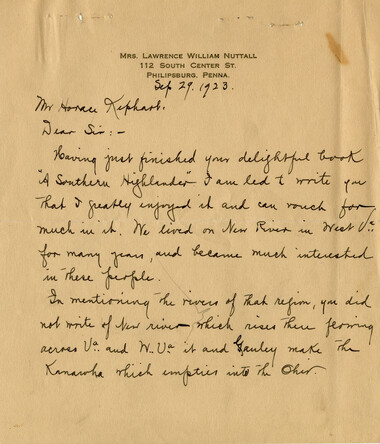 MRS. LAWRENCE WILLIAM NUTTALL
112 SOUTH CENTER ST.
PHILIPSBURG, PENNA.
Sep 29, 1923.
Mr Horace Kephart.
Dear Sir:-
Having just finished your delightful book
"A Southern Highlander" I am led to write you
that I greatly enjoyed it and can vouch for
much in it. We lived on New River in West Va
for many years, and became much interested
in these people.
In mentioning the rivers of that region, you did
not write of New river - which rises there flowing
across Va and W. Va it and Gauley make the
Kanawha which empties into the Ohio.